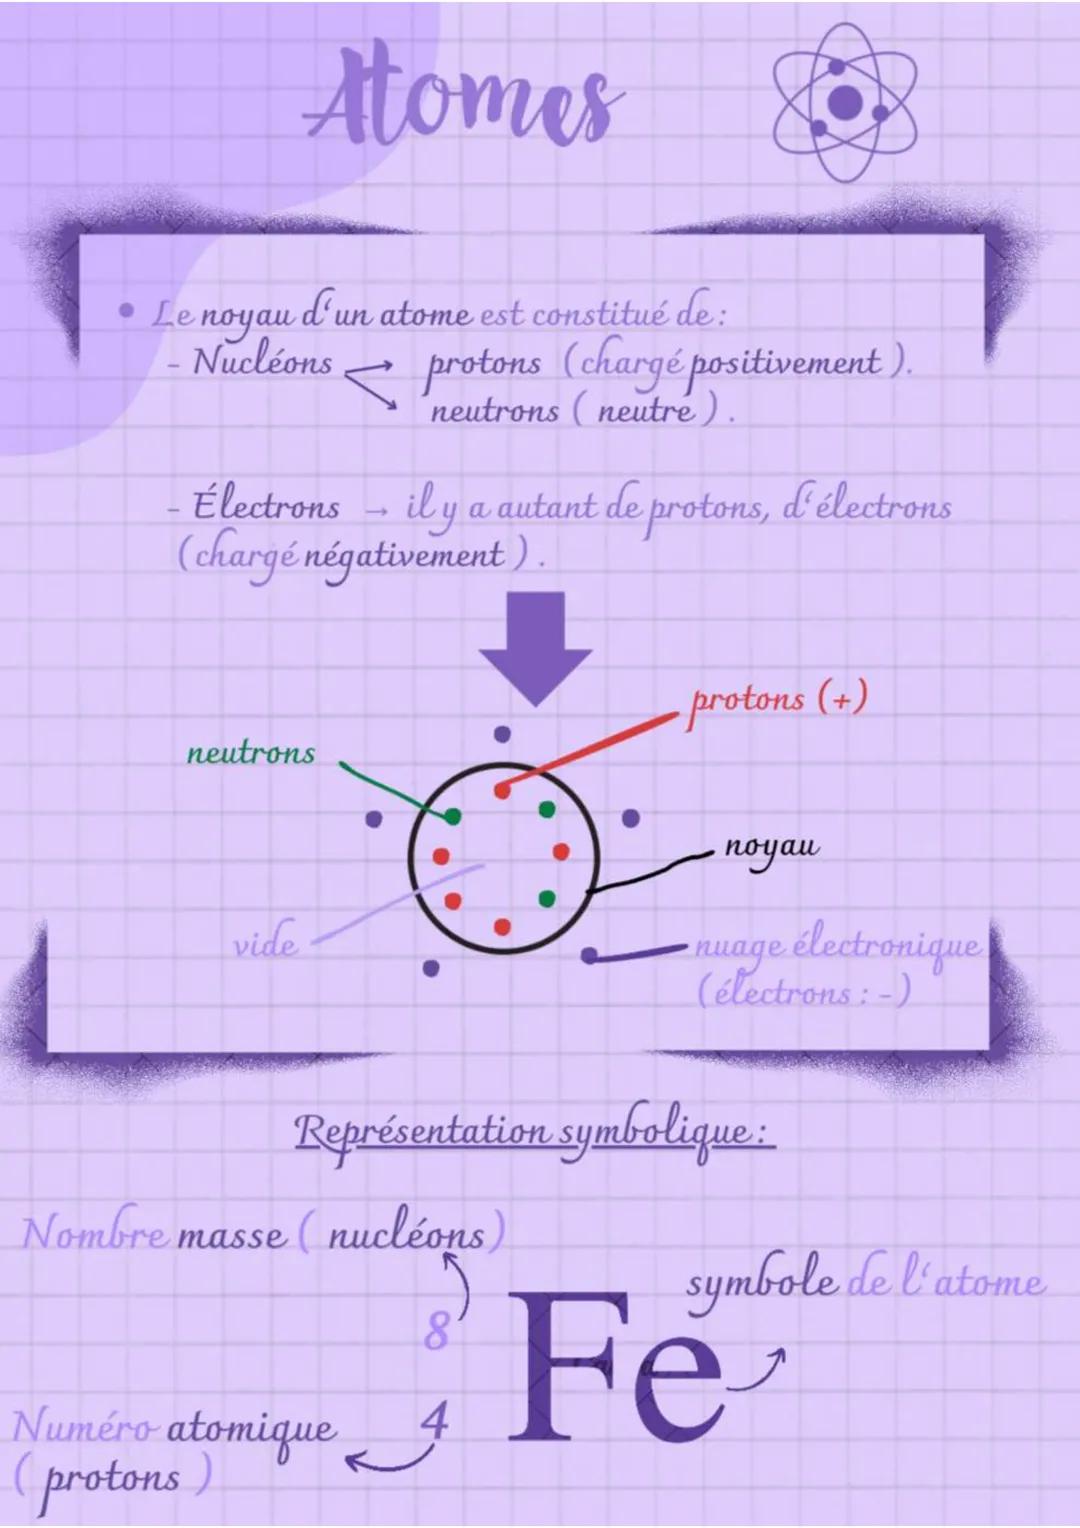 Atomes
• Le noyau d'un atome est constitué de :
- Nucléons → protons (chargé positivement).
→ neutrons ( neutre ).
- Électrons → il y a autant de protons, d'électrons
(chargé négativement).
protons (+)
neutrons
noyau
vide
nuage électronique
(électrons : -)
Représentation symbolique :
Nombre masse ( nucléons)
symbole de l'atome
8
Fe
4
Numéro atomique
( protons )